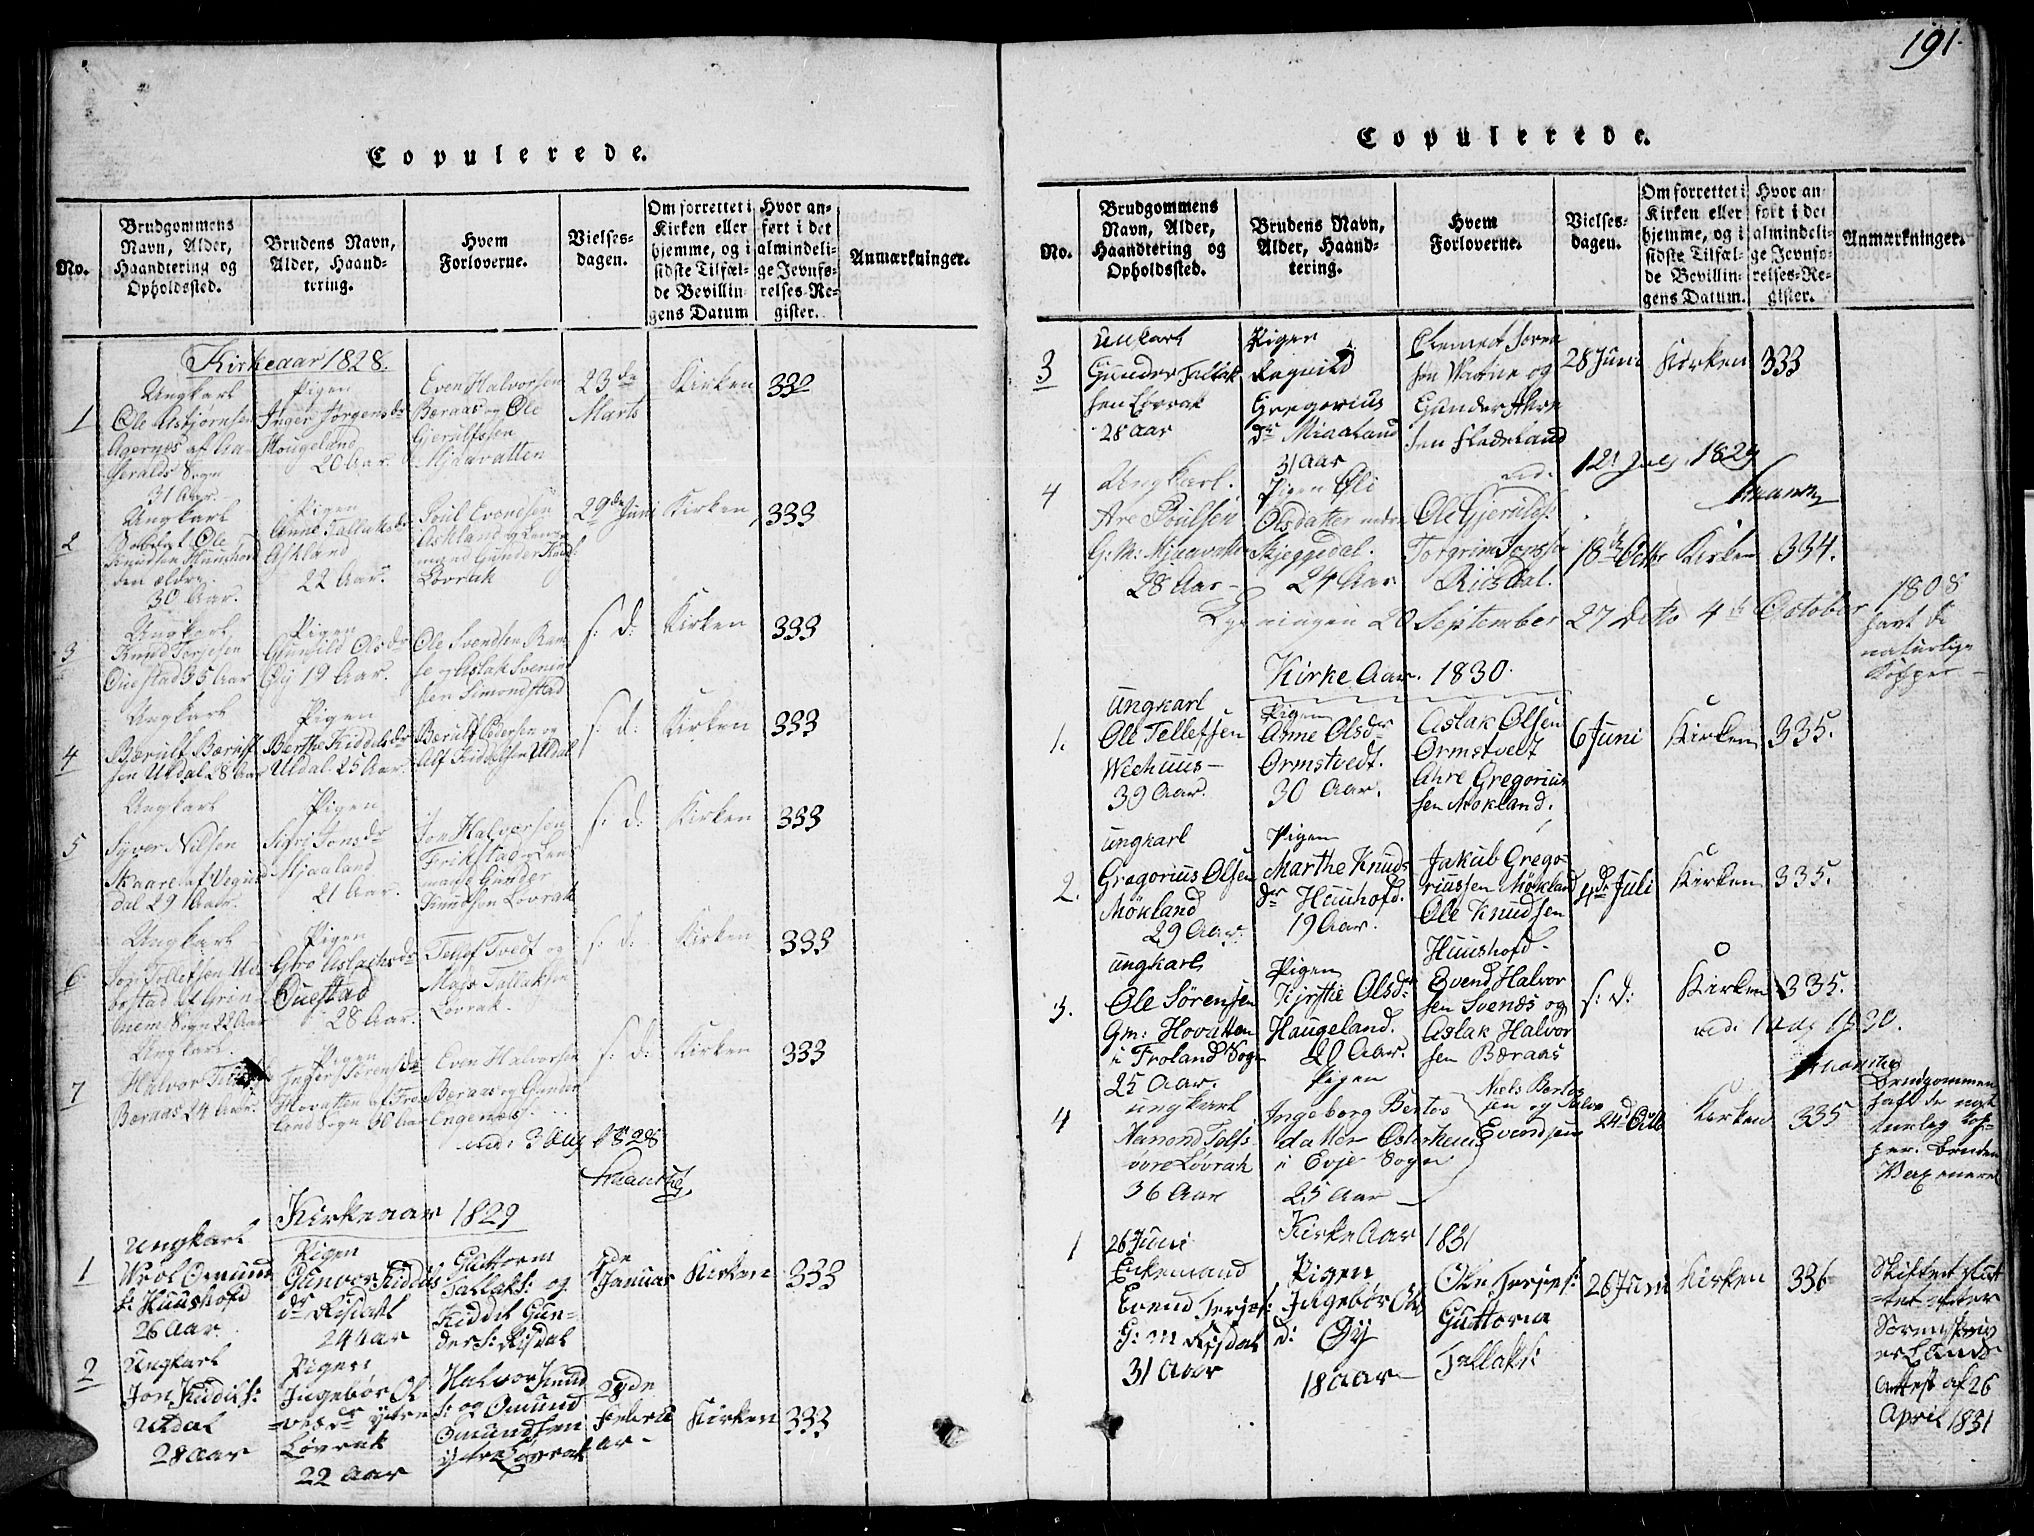 191.
Copulerede.
No.
Brudgommens
Navn, Alder,
Haandtering og
Opholdssted.
Brudens Navn,
Alder, Haand-
tering.
Hvem
Forloverne.
Vielses-
dagen.
Om forrettet i
Kirken eller
hjemme, og i
sidste Tilfæl-
de Bevillin-
gens Datum
Hvor an-
ført i det
almindeli-
ge Jevnfø-
relses-Re-
gister.
Anmærkninger.
Kirkeaar 1828.
1
Ungkarl
Ole Asbjørnsen
Agernes af
Heralds Sogn
31 Aar.
Pigen
Inger Jørgensdr
Hougeland
20 Aar.
Even Halvorsen
Beraas og Ole
Gjerulfssen
Mjaavatten
23de
Marts
Kirken
332
2
Ungkarl
Ole
Knudsen
den ældre.
30 Aar.
Pigen
Anne Tallaksdr
Askland
22 Aar.
Poul Evensen
Askland og Lens-
mand Gunder Knuds:
Lövrak
29de Juni
Kirken
333
3
Ungkarl
Knud Torjesen
Ouestad 35 Aar
Pigen
Gunild Olsdr
Öy 19 Aar.
Ole Svendsen Ram
se og Aslak Svenum
sen Simonstad
s: d:
Kirken
333
4
Ungkarl
Bærulf Bærulf
sen Utdal 28 Aar
Pigen
Berthe Kiddelsdr
Utdal 25 Aar.
Bærulf Pedersen og
Alf Kiddelsen Utdal
s: d:
Kirken
333
5
Ungkarl
Syver Nilsen
Skaare af Vegus
dal 29 Aar.
Pigen
Sigri Jonsdr
Mjaaland
21 Aar.
Jon Halvorsen
Frikstad og Len
mand Gunder
Knudsen Lövrak
s: d:
Kirken
333
6
Ungkarl
Jon Tollefsen
bestad af Grin
nem Sogn 22 Aar
Pigen
Gro Aslachsdr
Ouestad
28 Aar.
Tellef Tvedt og
Mads Tallaksen
Lövrak.
s: d:
Kirken
333
7
Ungkarl.
Halvor
Beraas 24 Aar.
Pigen
Inger Sørensdr
Hovatten af Fro
land Sogn 60 Aar
Even Halvorsen
Beraas og Gunder
Engenæs.
s: d:
Kirken
333
vid: 3 Aug 1828
Kirkeaar 1829
1
Ungkarl
Wrol Omund
s: Huushofd
26 Aar.
Pigen
Gunvor Kiddils
dr Risdal
24 aar
Guttorm
Tallaks: og
Kiddil Gun-
ders: Risdal
Januar
Kirken
333
2
Ungkarl
Jon Kiddils:
Utdal
28 aar
Pigen
Ingebör Ol
ytre
Lövrak
22 Aar
Halvor Knud
s: og Omund
Omundsen
ytre Lövrak
Febru
ar-
Kirken
333
Copulerede.
No.
Brudgommens
Navn, Alder,
Haandtering og
Opholdssted.
Brudens Navn,
Alder, Haand-
tering.
Hvem
Forloverne.
Vielses-
dagen.
Om forrettet i
Kirken eller
hjemme, og i
sidste Tilfæl-
de Bevillin-
gens Datum.
Hvor an-
ført i det
almindeli-
ge Jevnfø-
relses-Re-
gister.
Anmærkninger.
3
Unkarl
Gunder Tallak
sen Lövrak
28 aar
Pigen
Ragnild
Gregorius
dr Miaaland
31 aar
Clemet Soren
sen og
Gunder
sen Fledeland
28 Juni
Kirken
333
vid. 12 July 1829
4
Ungkarl.
Are Poulsen
G: M: Mjaavatten
28 Aar
Pigen Oli
Olsdatter nedre
Skjeggedal.
24 Aar
Ole Gjerulfs:
Torgrim Torssen
Riisdal.
18de Octbr
Kirken
334.
1808
havt de
naturlige
Kopper
Lysningen 20 September 27 deto 4de October
Kirke Aar. 1830.
1.
ungkarl
Ole Tellefsen
Weehuus
39 Aar.
Pigen
Anne Olsdr
Ormstvedt.
30 Aar.
Aslak Olsen
Ormstvedt
Ahre Gregorius
sen Mokland.
6 Juni
Kirken
335.
2.
ungkarl
Gregorius Olsen
Mökland
29 Aar.
Pigen
Marthe Knuds
dr Huushofd.
19 Aar.
Jakub Grego-
riussen Mökland
Ole Knudsen
Huushofd.
4de Juli
Kirken
335.
3.
ungkarl
Ole Sörensen
Gm: Hovatten
i Froland Sogn
25 Aar.
Pigen
Kirstie Olsd:
Haugeland.
20 Aar.
Evend Halvor
sen Svenæs og
Aslak Halvor
sen Bæraas
s: d:
Kirken
335.
4
ungkarl
Nanond Tolfs
övre Lövrak
36 Aar
Pigen
Ingeborg Bertos
datter Osterhuus
i Evje Sogn
25 Aar
Niels Bertos
sen og
Evendsen
24d Octb
Kirken
335
Brudgommen
haft de nat
turlig Kop-
per. Bruden
Vaxeneret
Kirke Aar 1831
1
26 Juni
Enkemand
Evend Terjes:
G: m Risdal
31 Aar
Pigen
Ingebör Ols
d: Öy
18 aar
Ole Terjes:
Guttorm
Tallaks:
26 Juni
Kirken
336
Skiftet slut
tet efter
Sorenskriv
erens
Attest af 26
April 1831